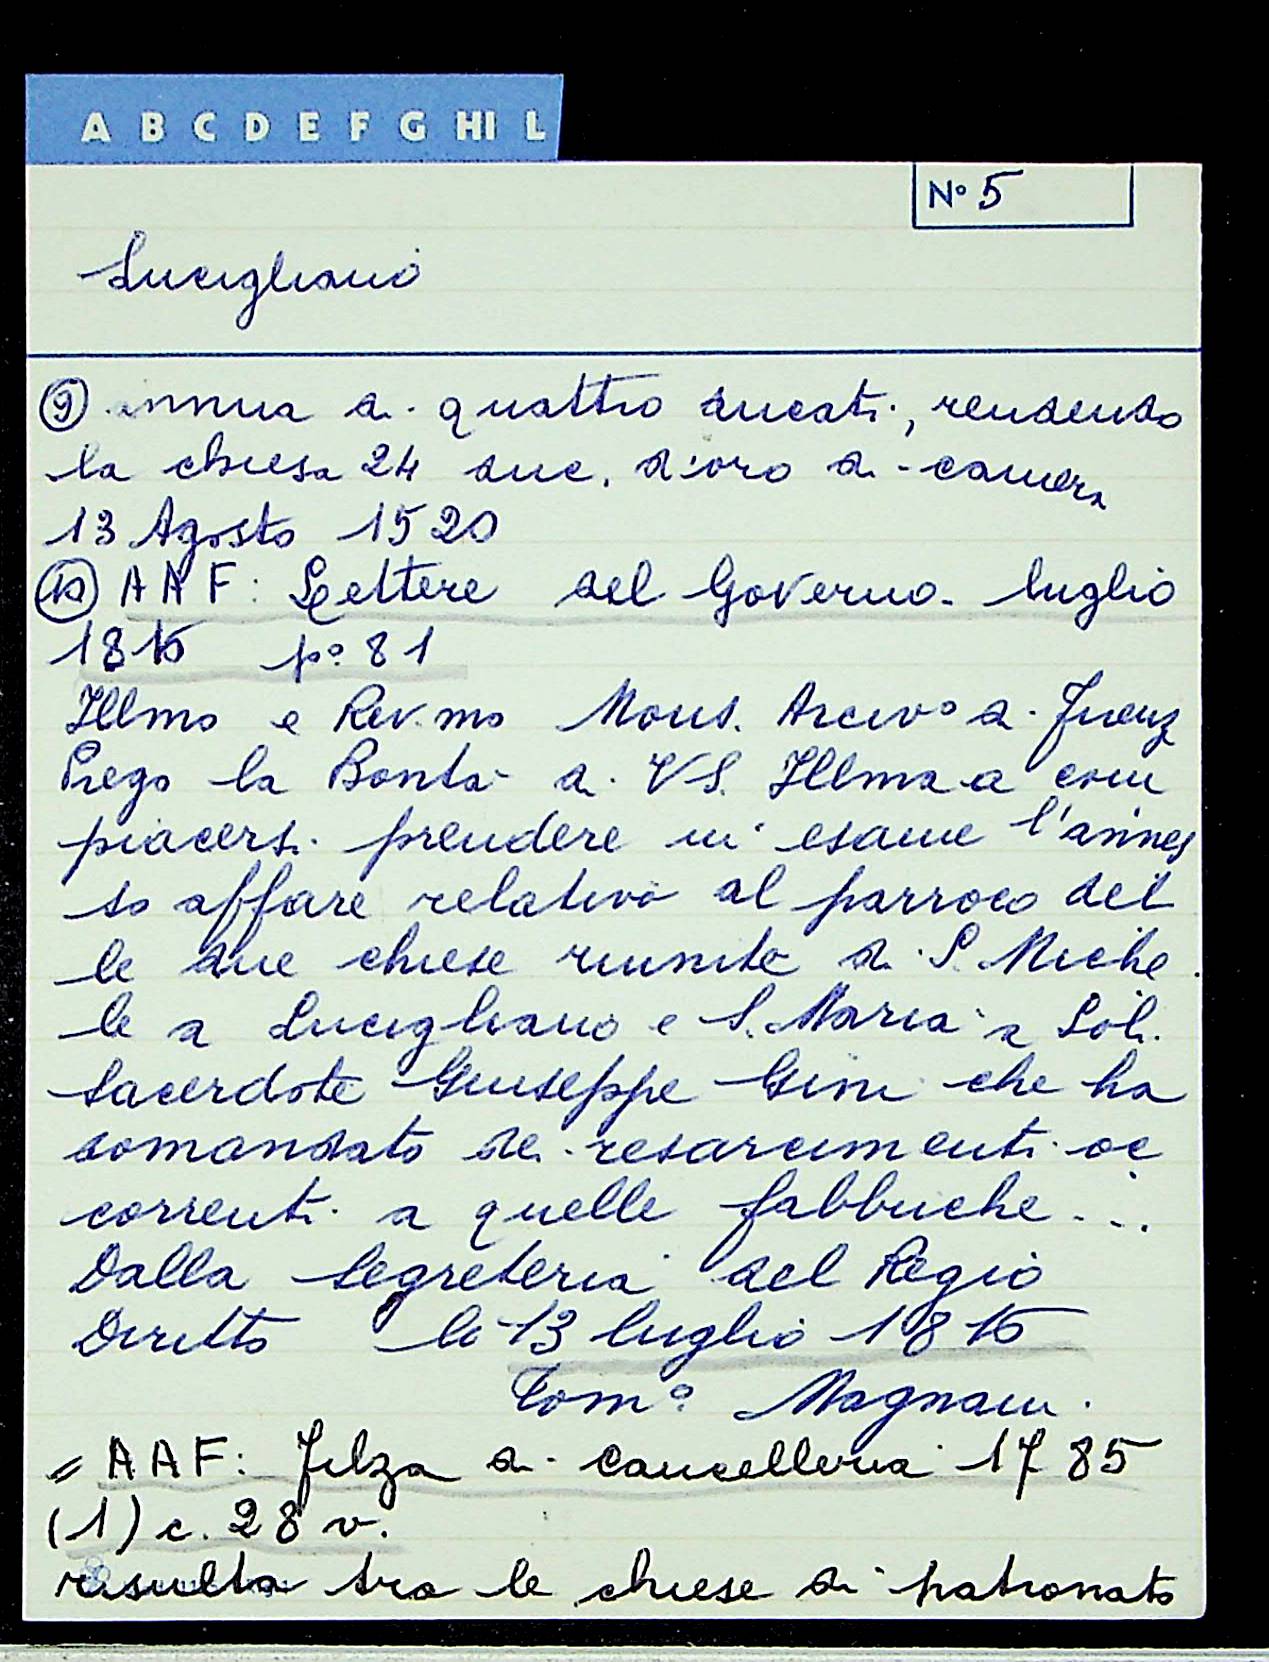 A B C D E F G HI L
N° 5
Lucigliano
9 annua di quattro ducati, rendendo
la chiesa 24 duc. d'oro di camera
13 Agosto 1520
10 AAF: Lettere del Governo luglio
1816 p° 81
Illmo e Rev.mo Mons. Arciv° di Firenz
Prego la Bontà di VS. Illma a com
piacersi prendere in esame l'annes
so affare relativo al parroco del
le due chiese riunite di S. Miche
le a Lucigliano e S. Maria a Soli
Sacerdote Giuseppe Gini che ha
domandato dei resarcimenti oc
correnti a quelle fabbriche...
Dalla Segreteria del Regio
Diritto li 13 luglio 1816
Tom° Magnani.
= AAF: Filza di Cancelleria 1785
(1) c. 28 v.
risulta tra le chiese di patronato